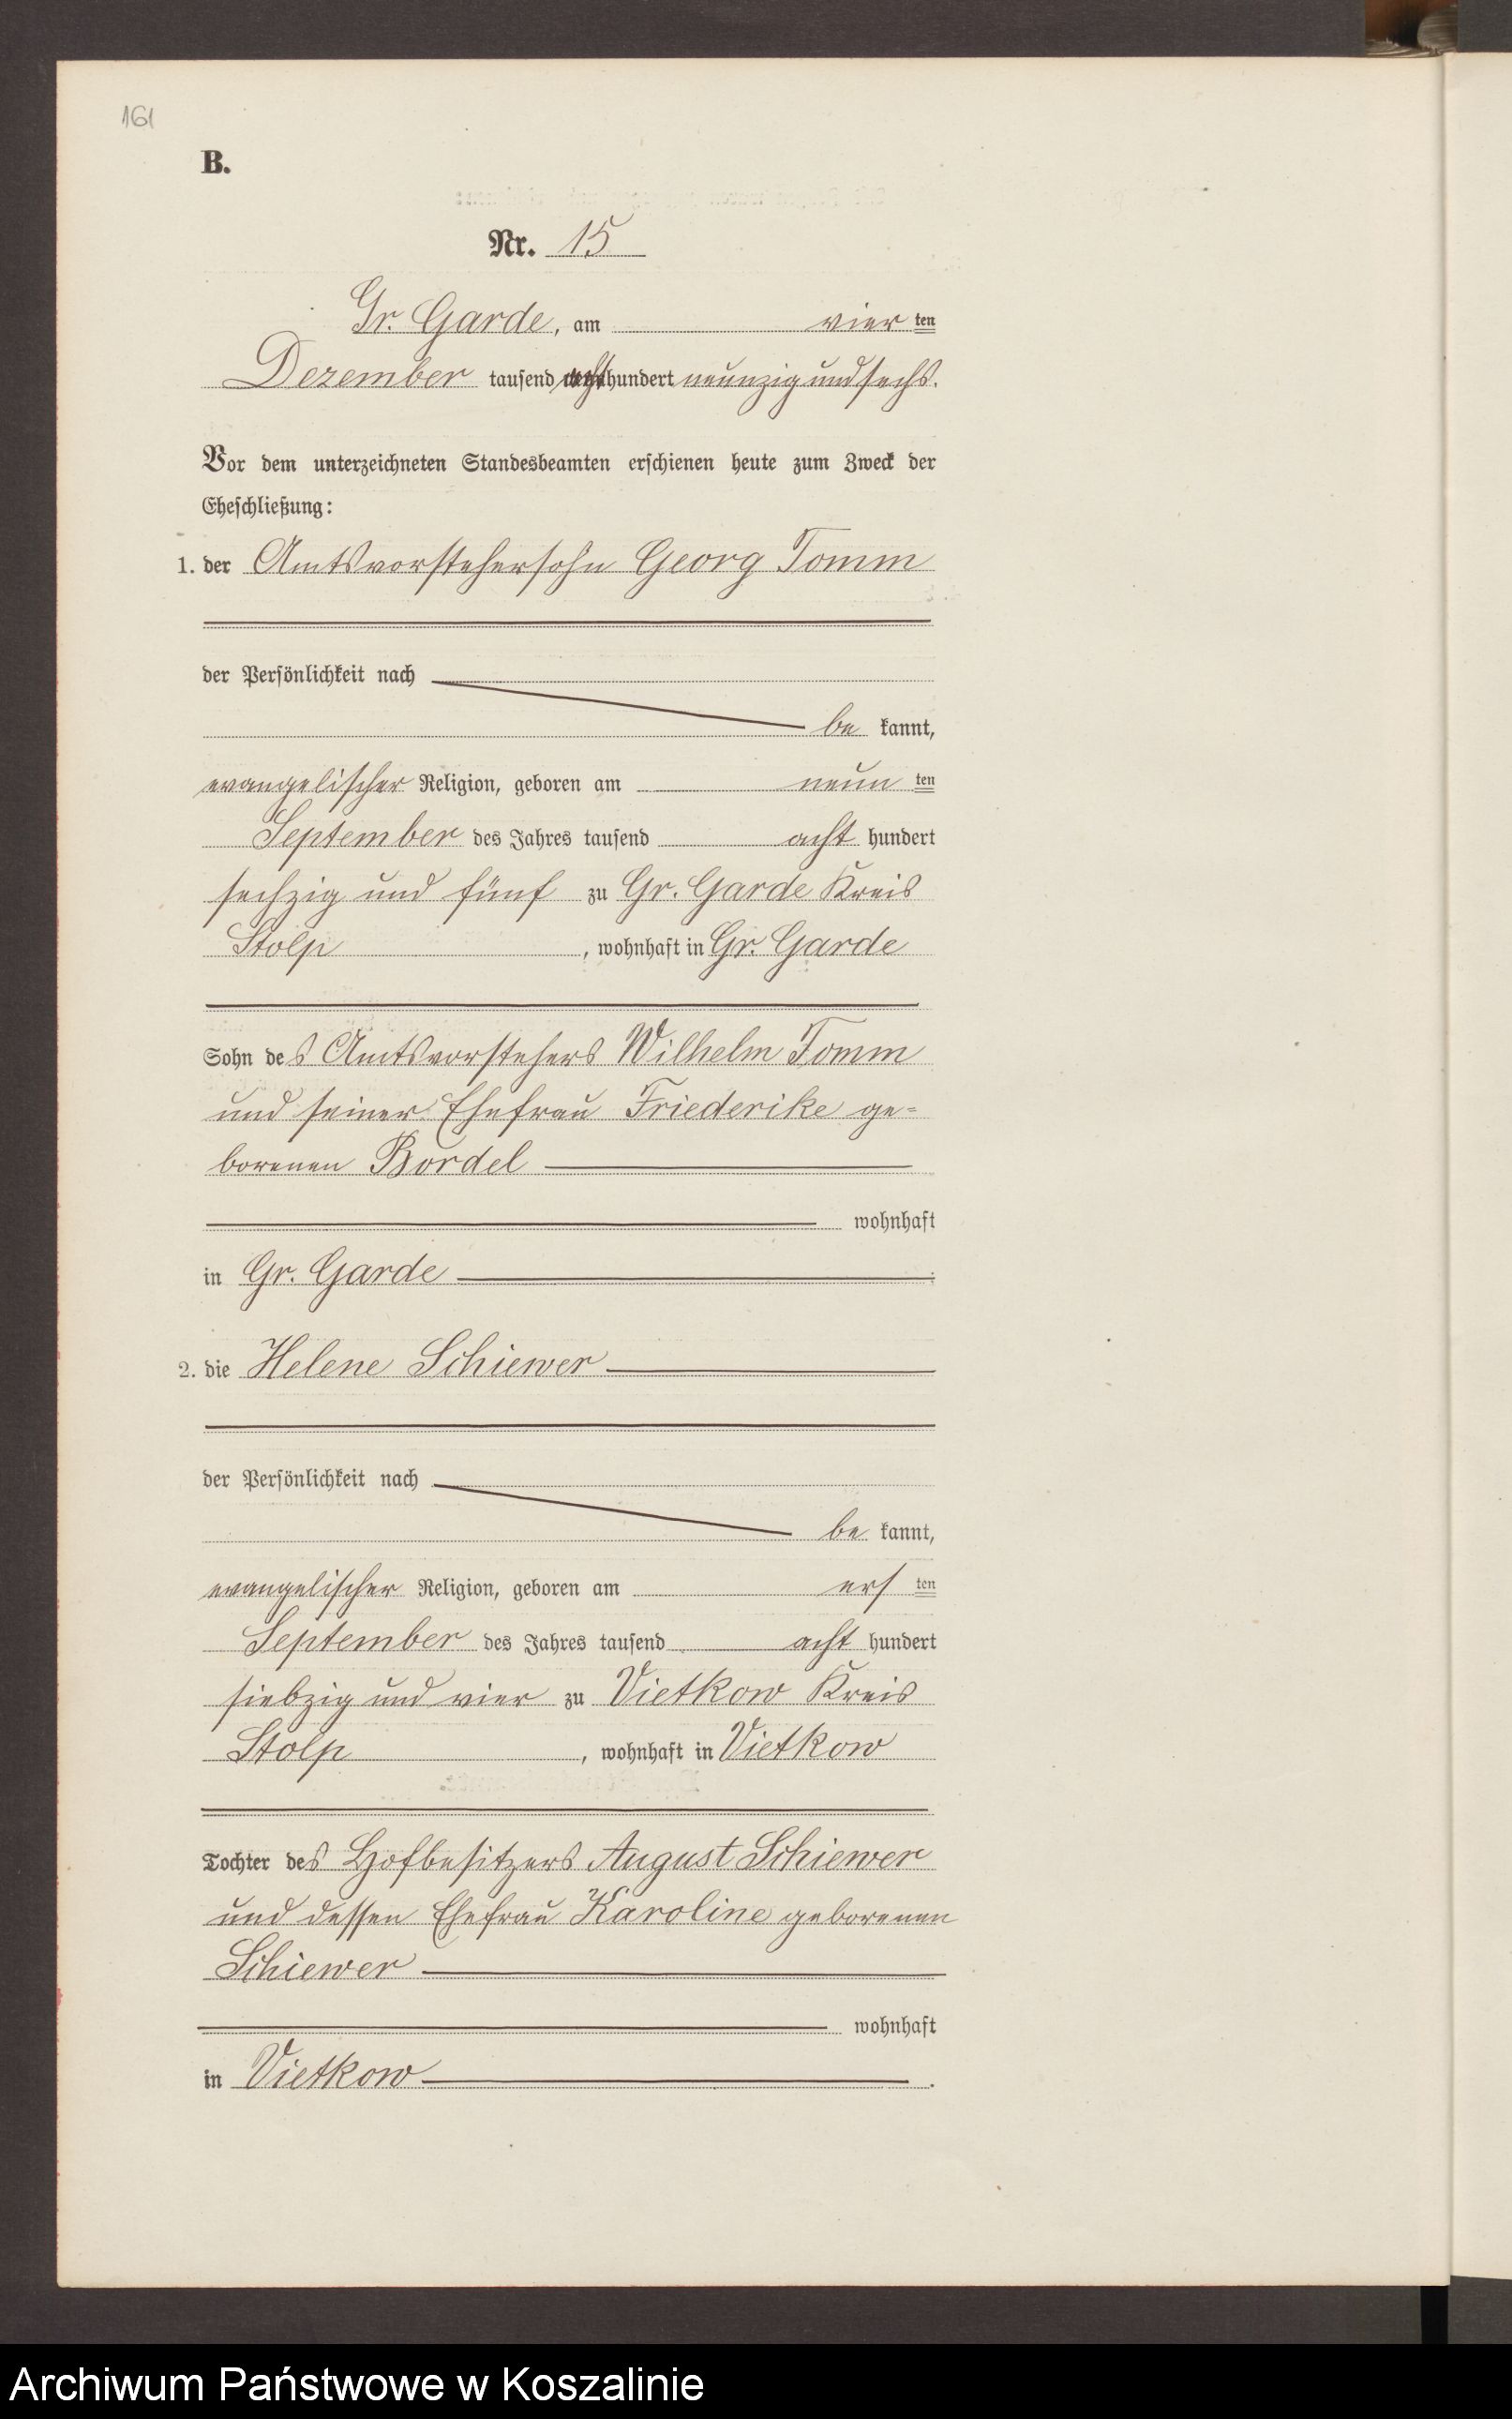 161
B.
Nr. 15
Gr. Garde, am vier ten
Dezember tausend achthundert neunzig und sechs.
Vor dem unterzeichneten Standesbeamten erschienen heute zum Zweck der
Eheschließung:
1. der Amtsvorstehersohn Georg Tomm
der Persönlichkeit nach
be kannt,
evangelischer Religion, geboren am neun ten
September des Jahres tausend acht hundert
sechzig und fünf zu Gr. Garde Kreis
Stolp, wohnhaft in Gr. Garde
Sohn des Amtsvorstehers Wilhelm Tomm
und seiner Ehefrau Friederike ge-
borenen Bordel
wohnhaft
in Gr. Garde
2. die Helene Schiewer
der Persönlichkeit nach
be kannt,
evangelischer Religion, geboren am ers ten
September des Jahres tausend acht hundert
siebzig und vier zu Vietkow Kreis
Stolp, wohnhaft in Vietkow
Tochter des Hofbesitzers August Schiewer
und dessen Ehefrau Karoline geborenen
Schiewer
wohnhaft
in Vietkow.
Archiwum Państwowe w Koszalinie